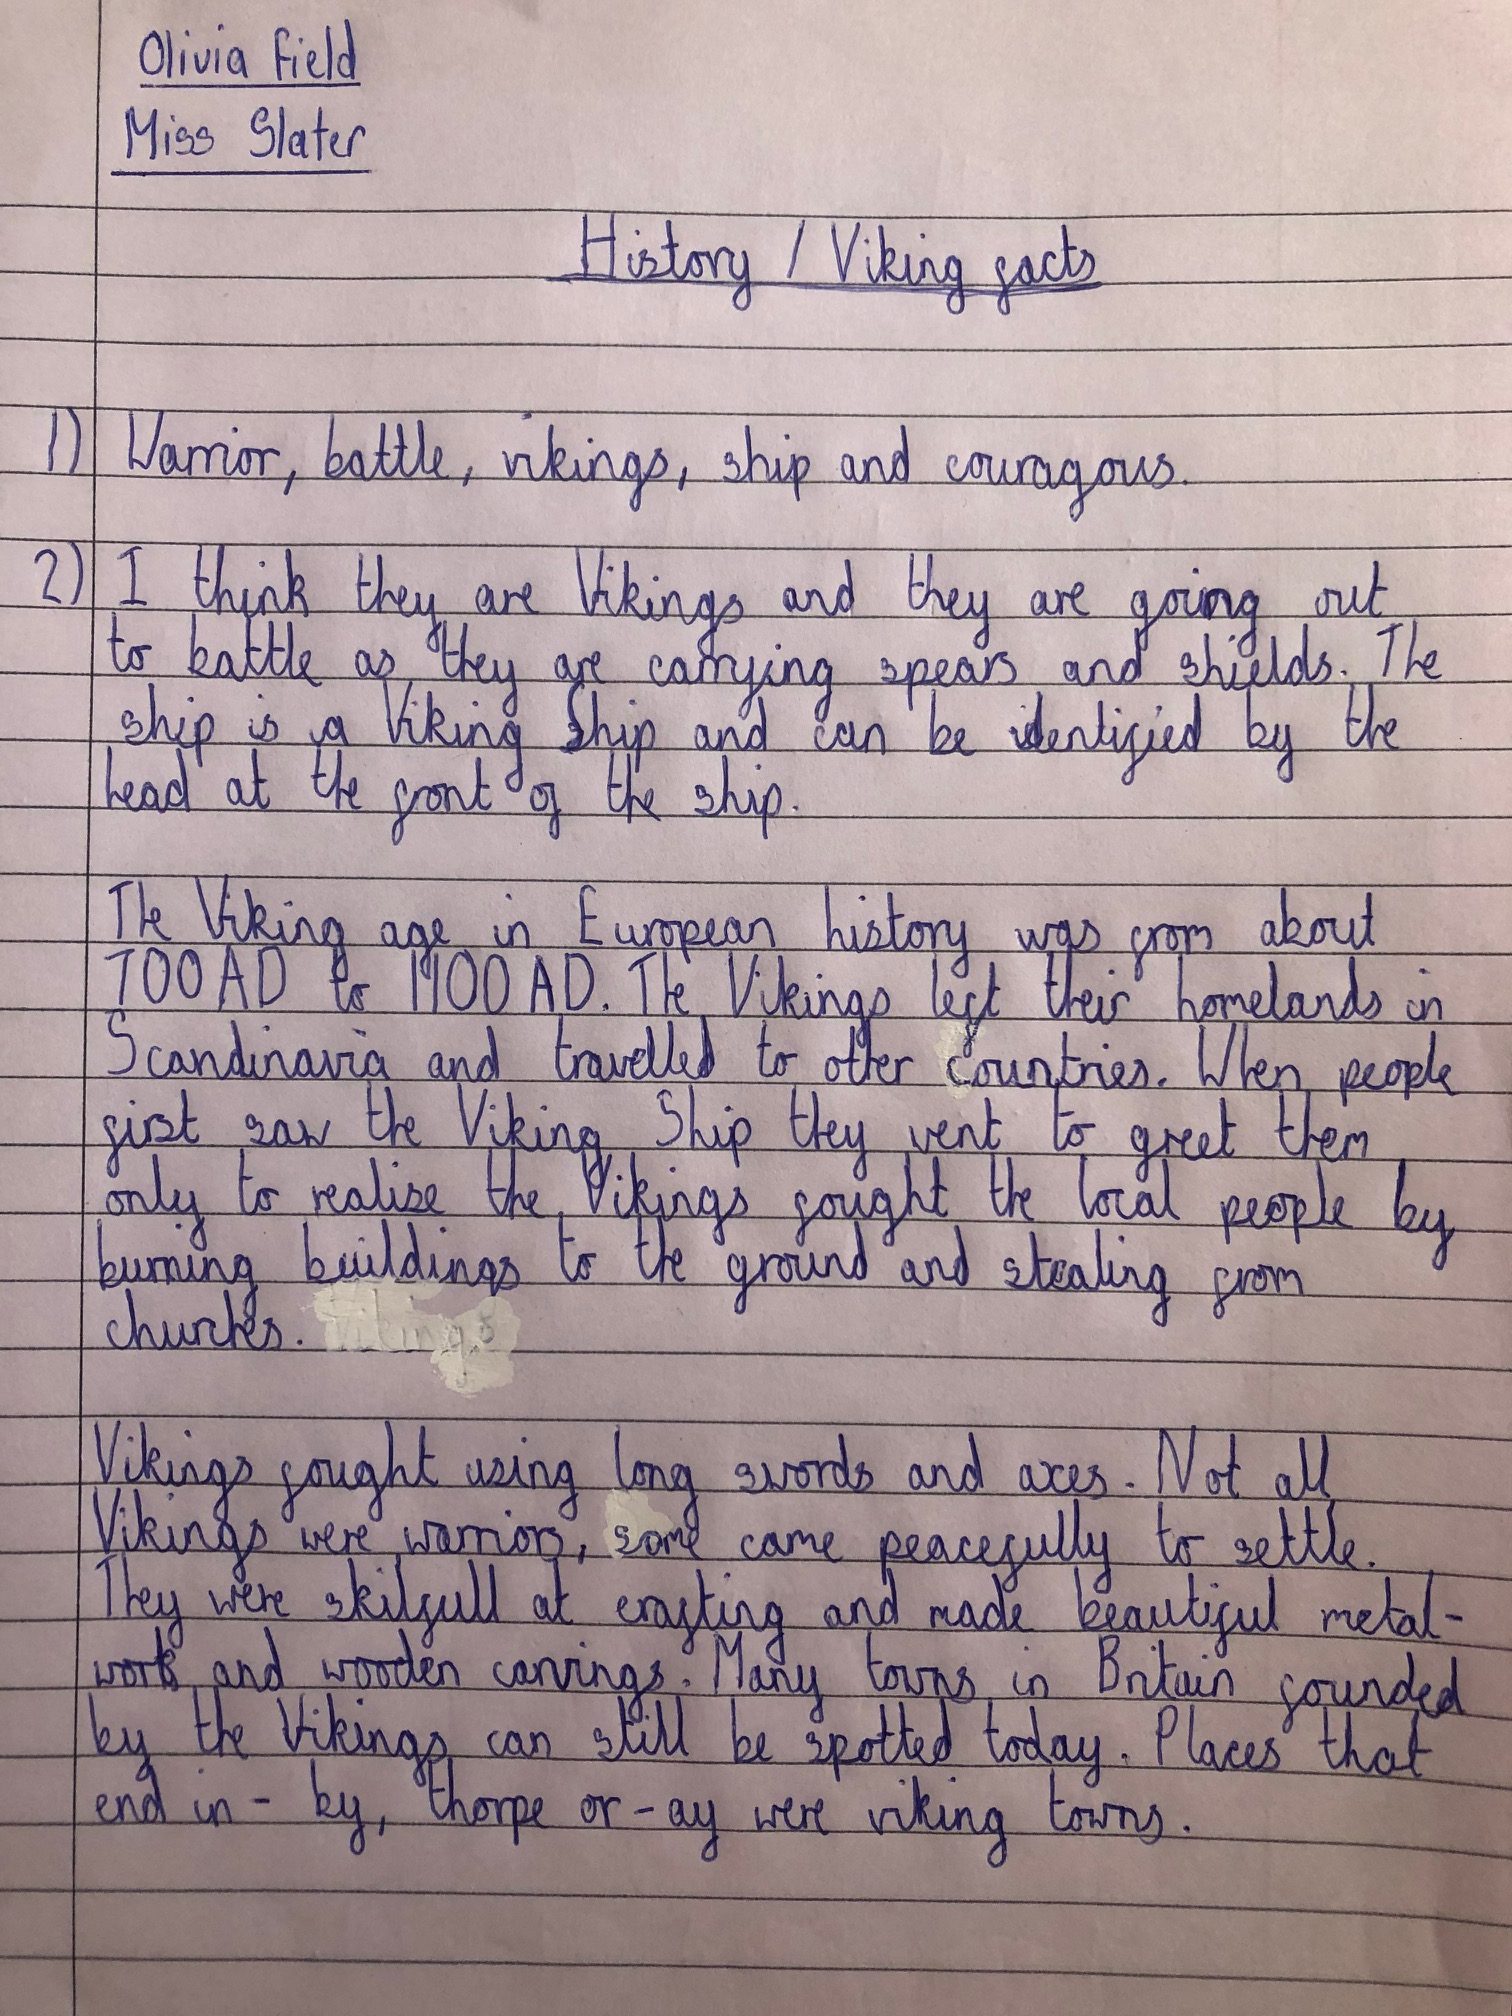 Olivia Field
Miss Slater
History / Viking facts
1) Warrior, battle, vikings, ship and couragous.
2) I think they are Vikings and they are going out
to battle as they are carrying spears and shields. The
ship is a Viking Ship and can be identified by the
head at the front of the ship.
The Viking age in European history was from about
700AD to 1100AD. The Vikings left their homelands in
Scandinavia and travelled to other countries. When people
first saw the Viking Ship they went to greet them
only to realise the Vikings fought the local people by
burning buildings to the ground and stealing from
churches. Vikings
Vikings fought using long swords and axes. Not all
Vikings were warriors, some came peacefully to settle.
They were skilfull at crafting and made beautiful metal-
work and wooden carvings. Many towns in Britain founded
by the Vikings can still be spotted today. Places that
end in - by, thorpe or -ay were viking towns.